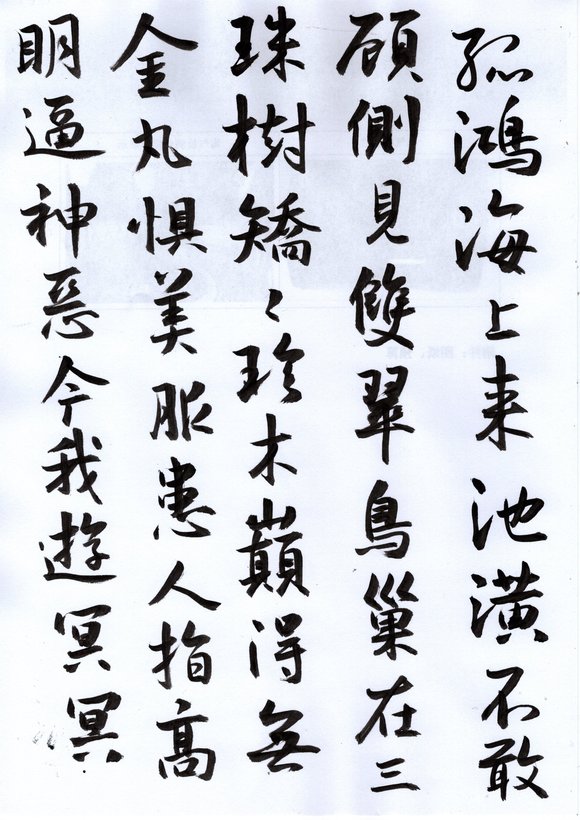 孤鴻海上来池潢不敢
顧側見雙翠鳥巢在三
珠樹矯〻珍木巔得無
金丸懼美服患人指高
明逼神惡今我遊冥冥